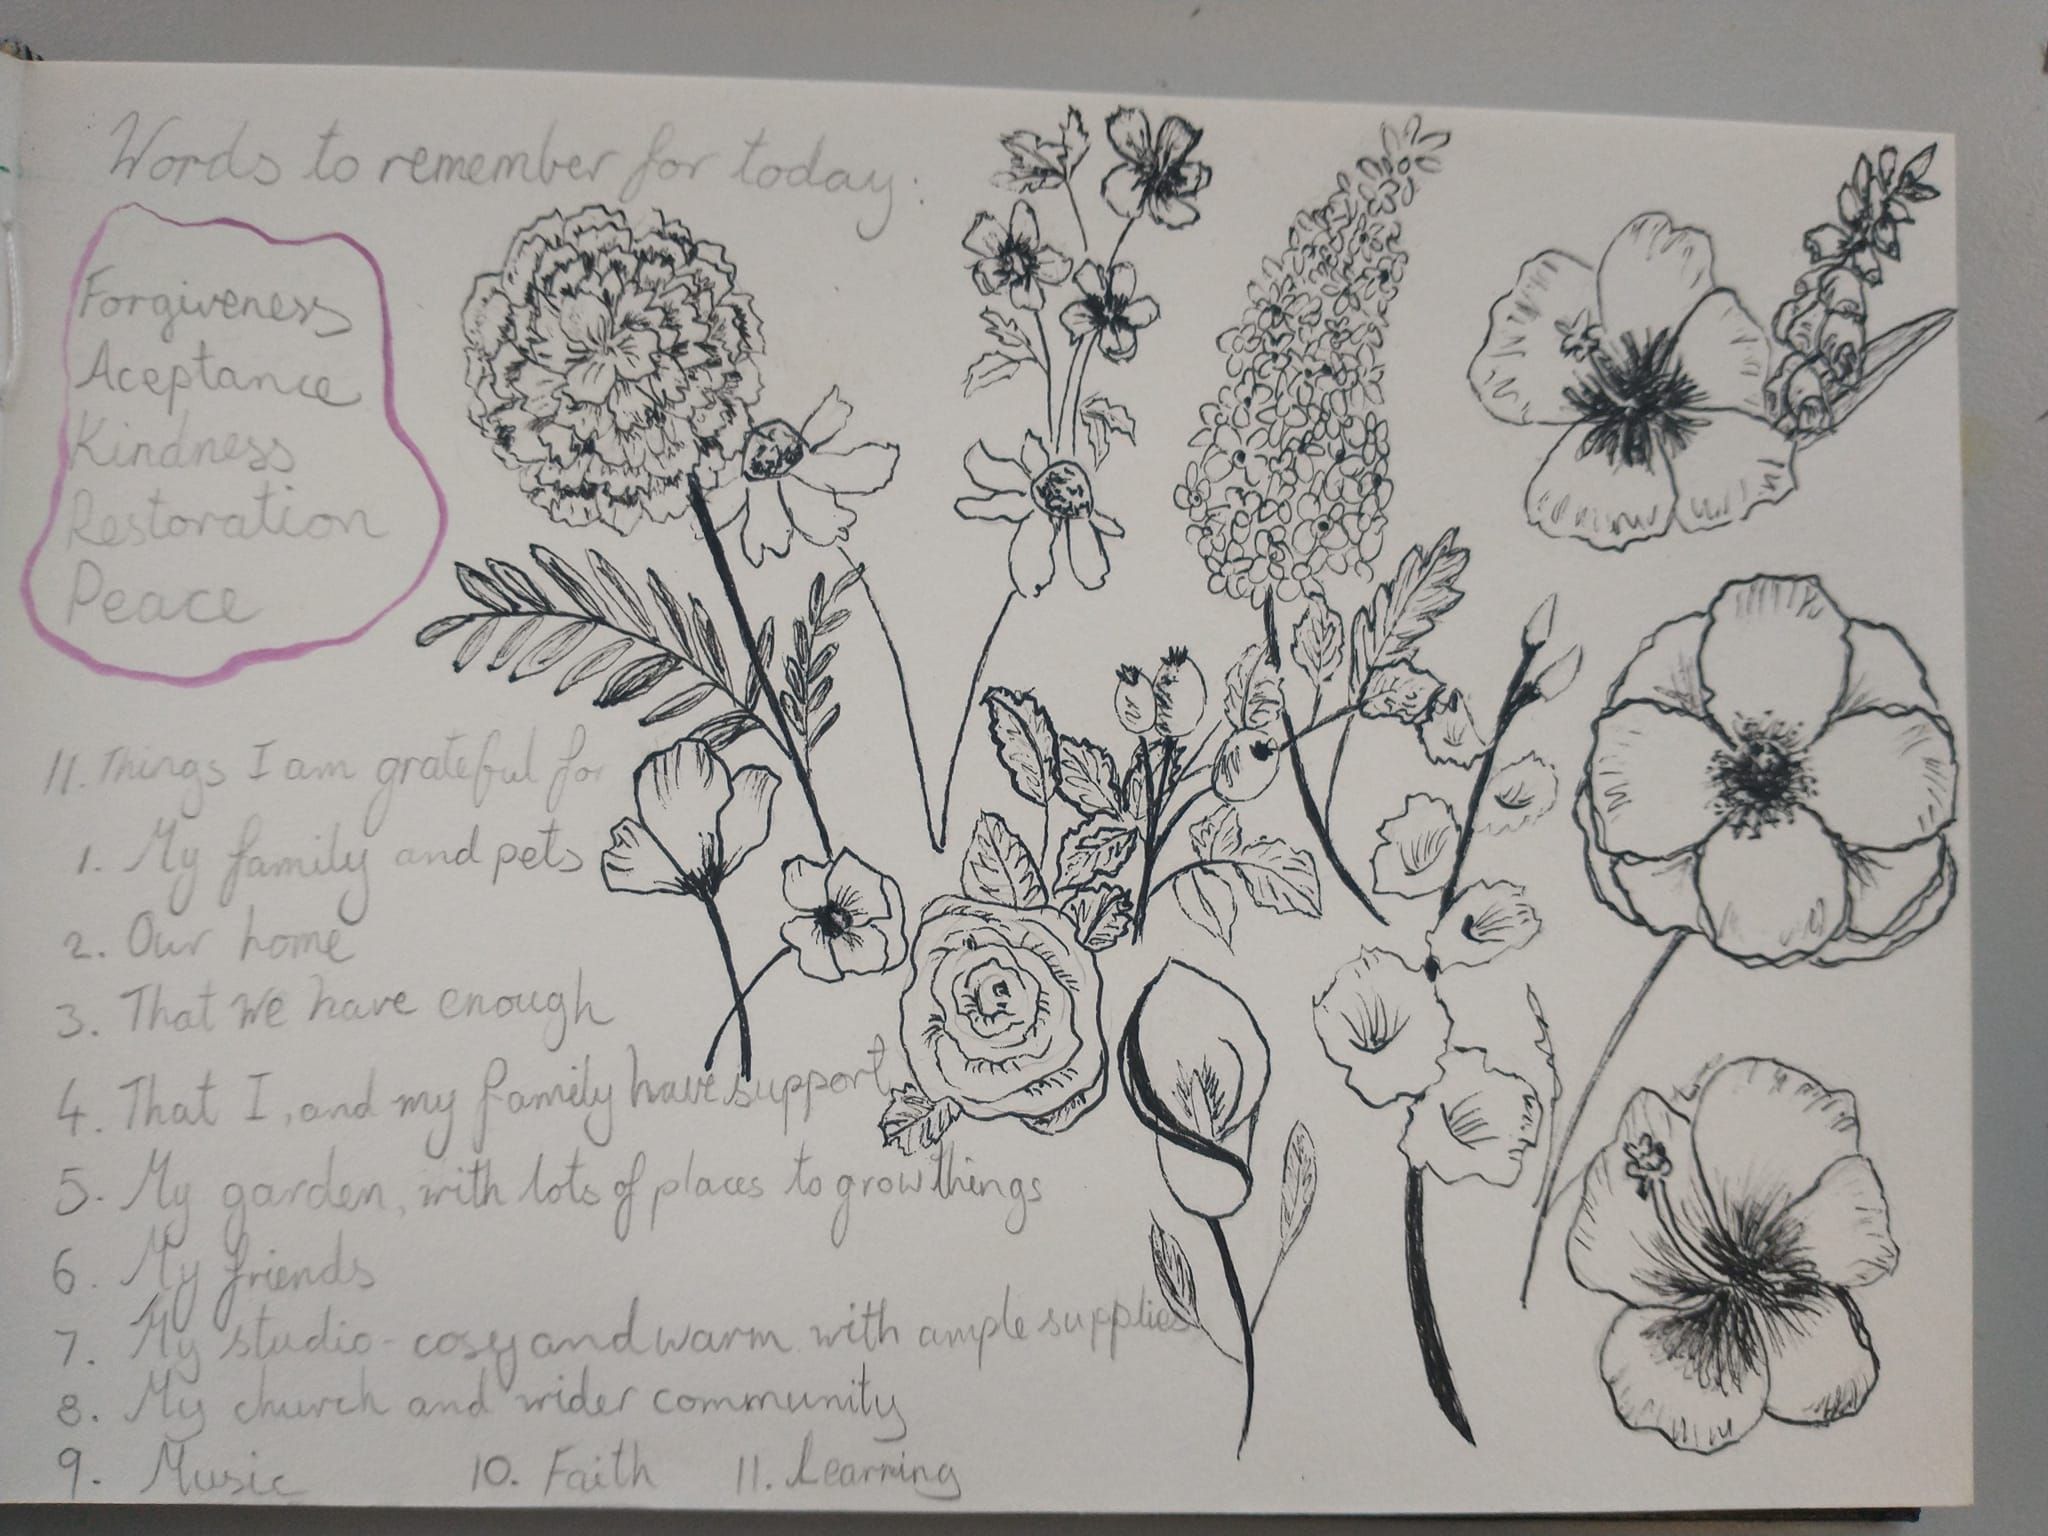 Words to remember for today:
Forgiveness
Aceptance
Kindness
Restoration
Peace
11. Things I am grateful for
1. My family and pets
2. Our home
3. That we have enough
4. That I, and my family have support
5. My garden, with lots of places to grow things
6. My friends
7. My studio - cosy and warm with ample supplies
8. My church and wider community
9. Music 10. Faith 11. Learning